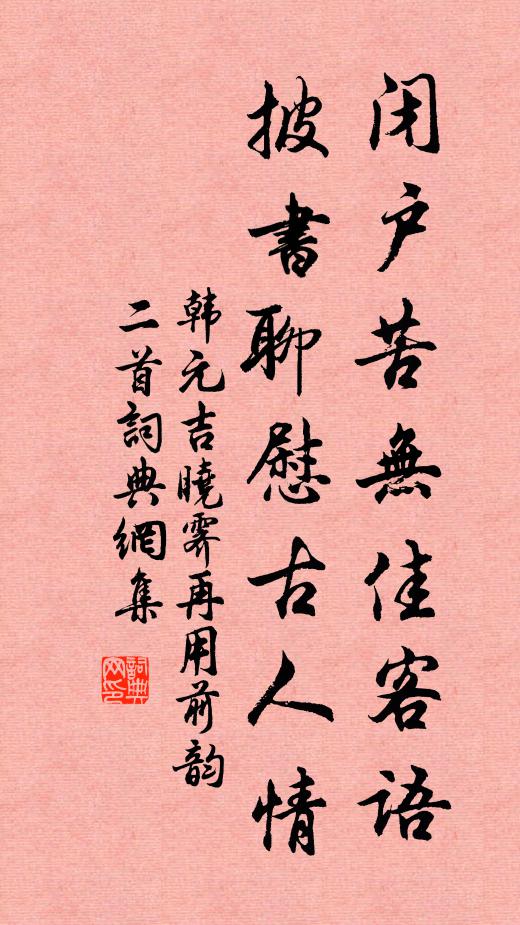 闭户苦無佳客语
披書聊慰古人情
韩元吉曉霁再用前韵
二首詞典網集
詞典
网印